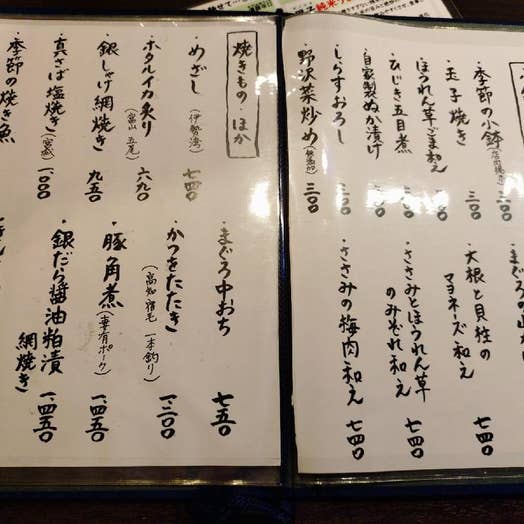 季節の小鉢
三〇〇
玉子焼き
三〇〇
ほうれん草ごま和え
三〇〇
ひじき五目煮
三〇〇
自家製ぬか漬け
三〇〇
しらすおろし
三〇〇
野沢菜炒め(無添加)
三〇〇
大根と貝柱の
マヨネーズ和え
七四〇
ささみとほうれん草
のみぞれ和え
七四〇
ささみの梅肉和え
七四〇
焼きもの・ほか
・めざし(伊勢湾)
七四〇
・ホタルイカ炙り(富山 五尾)
六九〇
・銀しゃけ網焼き
九五〇
・真さば塩焼き(宮城)
一、〇〇〇
・季節の焼き魚
・まぐろ中おち
七五〇
・かつをたたき
(高知宿毛 一本釣り)
一、三〇〇
・豚角煮(妻有ポーク)
一、四五〇
・銀だら醤油粕漬
網焼き
一、四五〇